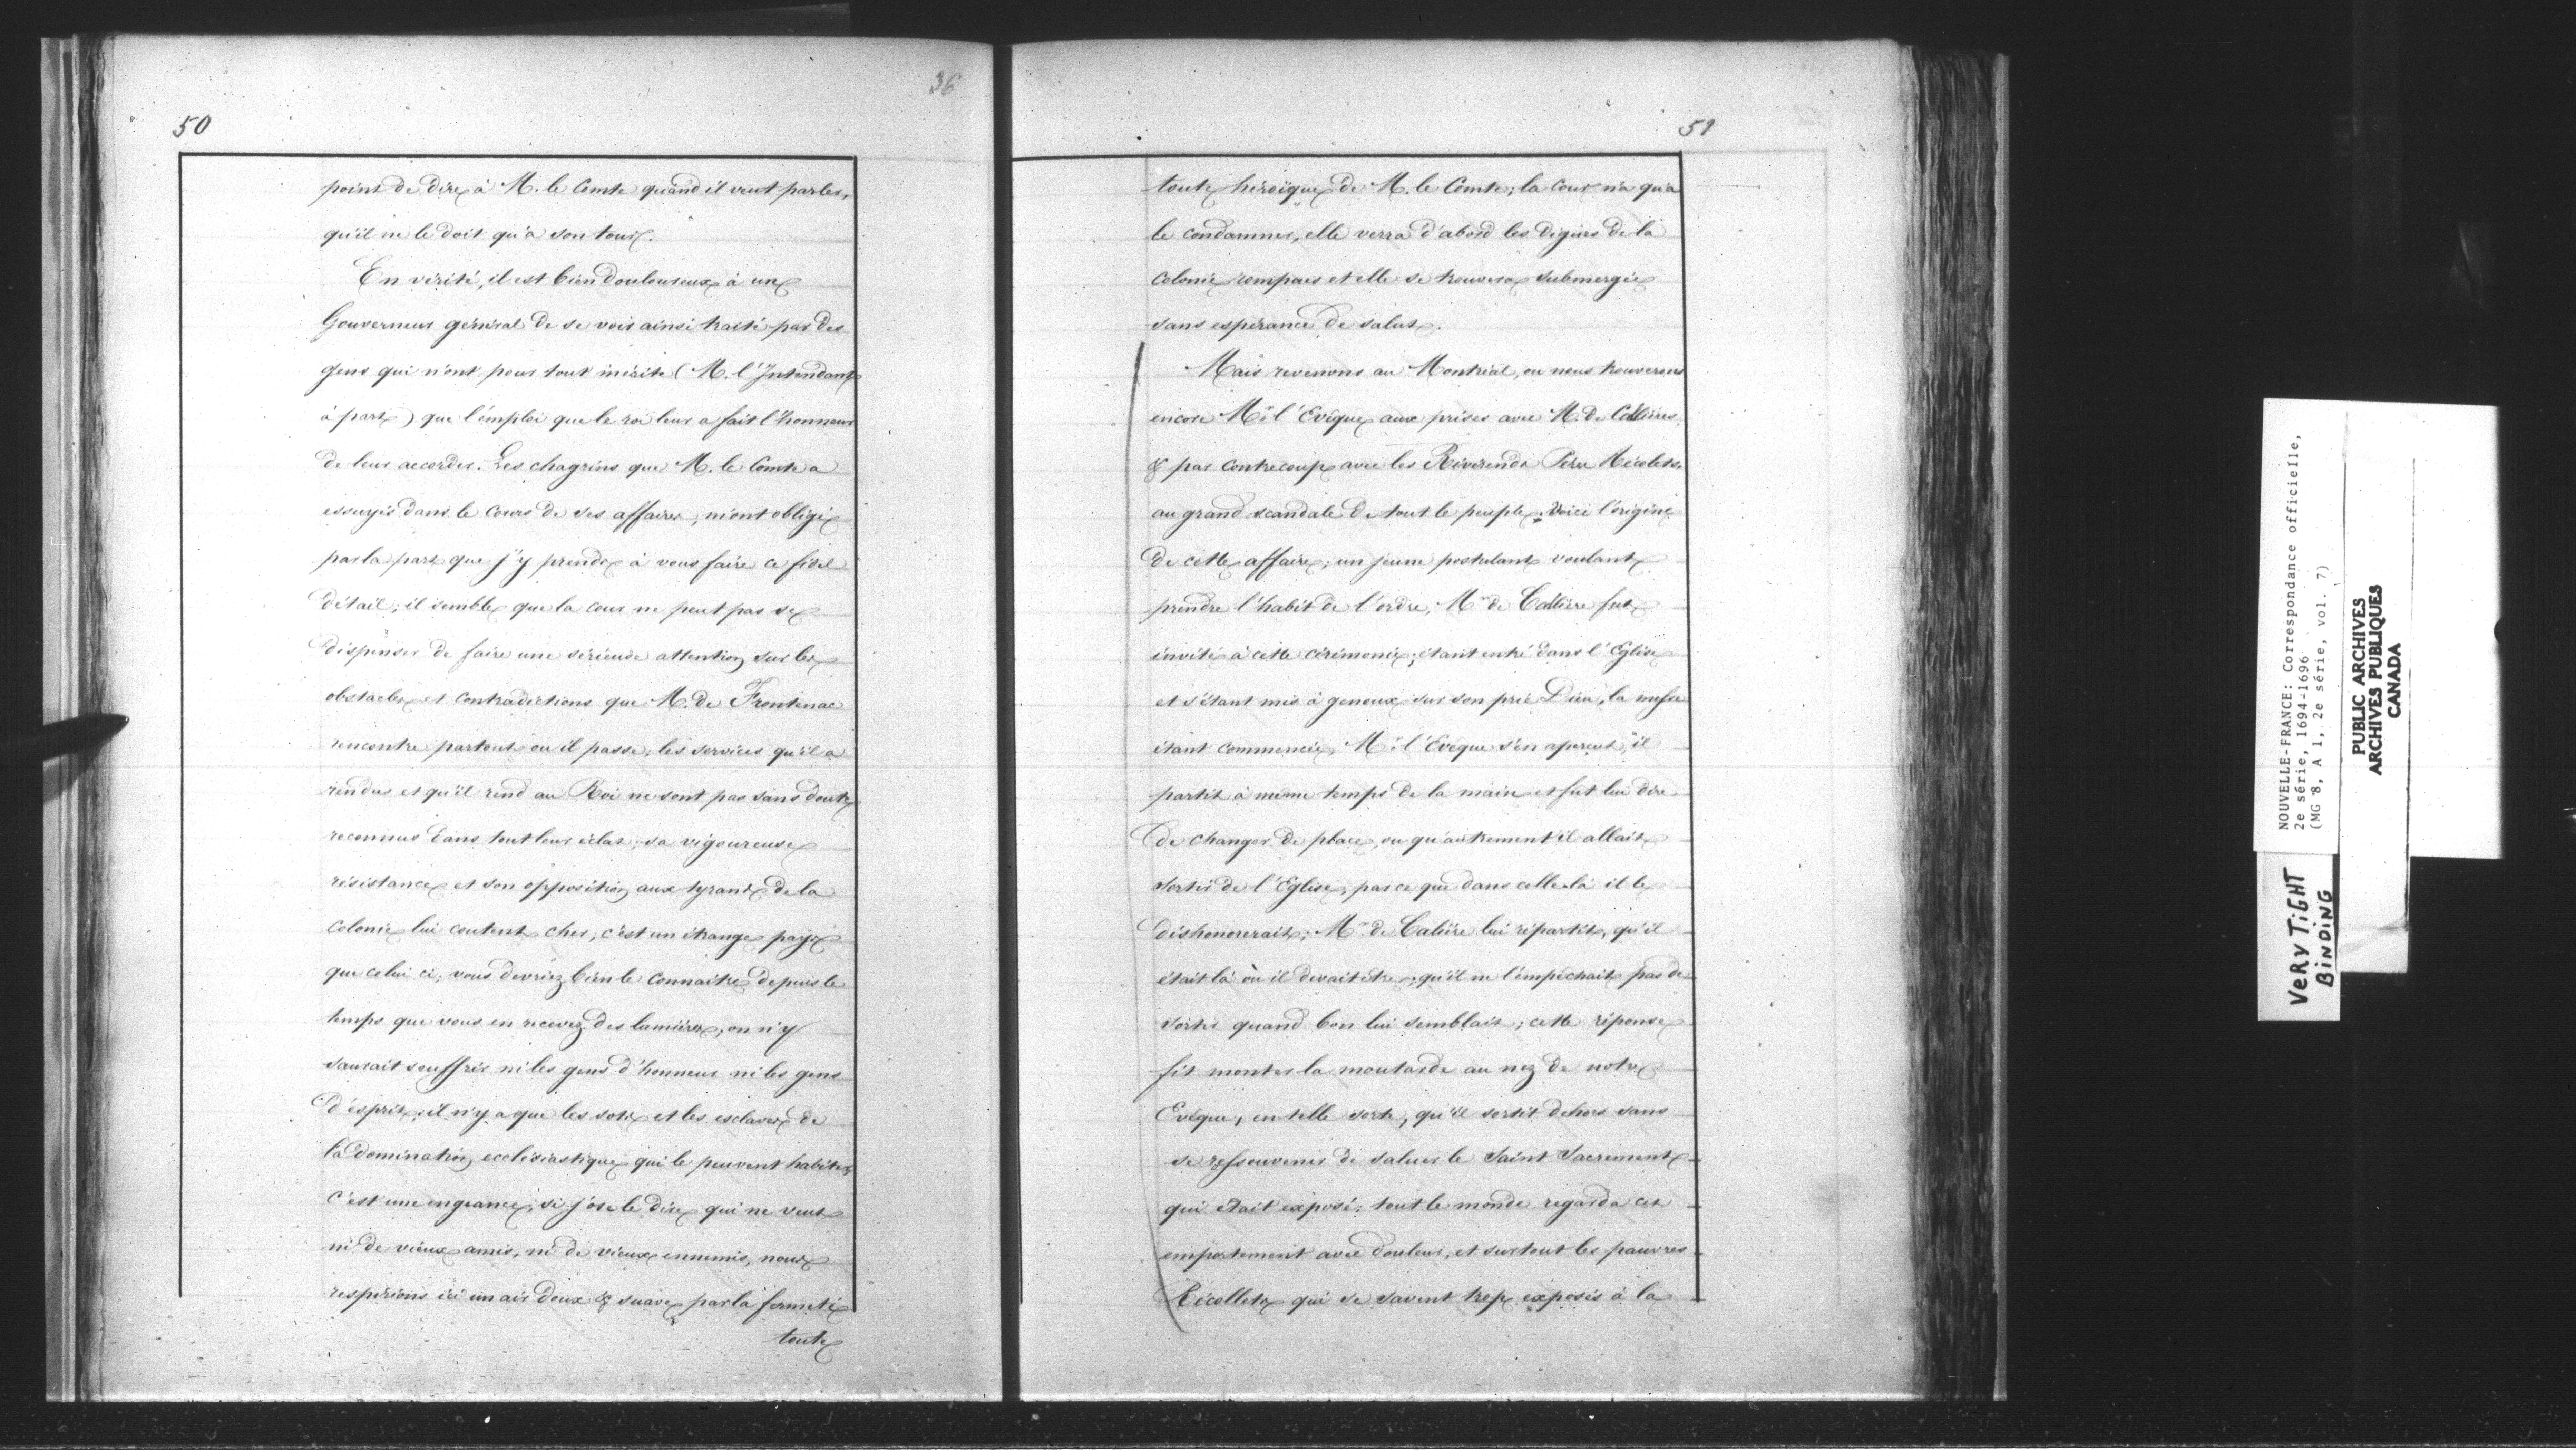 36
50
point de dire à M. le Comte quand il veut parler,
qu'il ne le doit qu'à son tour.
En vérité, il est bien douloureux à un
Gouverneur général de se voir ainsi traité par des
gens qui n'ont pour tout mérite (M. l'Intendant
à part) que l'emploi que le roi leur a fait l'honneur
de leur accorder. Les chagrins que M. le Comte a
essuyés dans le cours de ses affaires, m'ont obligé
par la part que j'y prends à vous faire ce fidel
détail; il semble que la cour ne peut pas se
dispenser de faire une sérieuse attention sur les
obstacles et contradictions que M. de Frontenac
rencontre partout ou il passe; les services qu'il a
rendus et qu'il rend au Roi ne sont pas sans doute
reconnus dans tout leur éclat; sa vigoureuse
résistance et son opposition aux tyrans de la
colonie lui coutent cher; c'est un étrange pays
que celui ci; vous devriez bien le connaitre depuis le
temps que vous en recevez des lumières; on n'y
saurait souffrir ni les gens d'honneur ni les gens
d'esprit; il n'y a que les sots et les esclaves de
la domination ecclésiastique qui le peuvent habiter,
c'est une engeance, si j'ose le dire qui ne veut
ni de vieux amis, ni de vieux ennemis, nous
respirons ici un air doux & suave par la fermeté
toute
51
toute héroïque de M. le Comte; la Cour n'a qu'a
le condamner, elle verra d'abord les digues de la
colonie rompues et elle se trouvera submergée
sans espérance de salut.
Mais revenons au Montréal, ou nous trouverons
encore Mr l'Evêque aux prises avec M. de Callières
& par contrecoup avec les Révérends Pères Récolets
au grand scandale de tout le peuple. Voici l'origine
de cette affaire; un jeune postulant voulant
prendre l'habit de l'ordre, Mr de Callière fut
invité à cette cérémonie; étant entré dans l'Eglise
et s'étant mis à genoux sur son prié Dieu, la messe
étant commencée, Mr l'Evêque s'en aperçut, il
partit à même temps de la main et fut lui dire
de changer de place, ou qu'autrement il allait
sortir de l'Eglise, parce que dans celle là il le
déshonorerait; Mr de Calière lui répartit, qu'il
était là où il devait être; qu'il ne l'empêchait pas de
sortir quand bon lui semblait; cette réponse
fit monter la moutarde au nez de notre
Evêque, en telle sorte, qu'il sortit dehors sans
se ressouvenir de saluer le Saint Sacrement
qui était exposé; tout le monde regarda cet
emportement avec douleur, et surtout les pauvres
Récollets qui se savent trop exposés à la
NOUVELLE-FRANCE: Correspondance officielle,
2e série, 1694-1696
(MG 8, A 1, 2e série, vol. 7)
PUBLIC ARCHIVES
ARCHIVES PUBLIQUES
CANADA
VERY TIGHT
BINDING